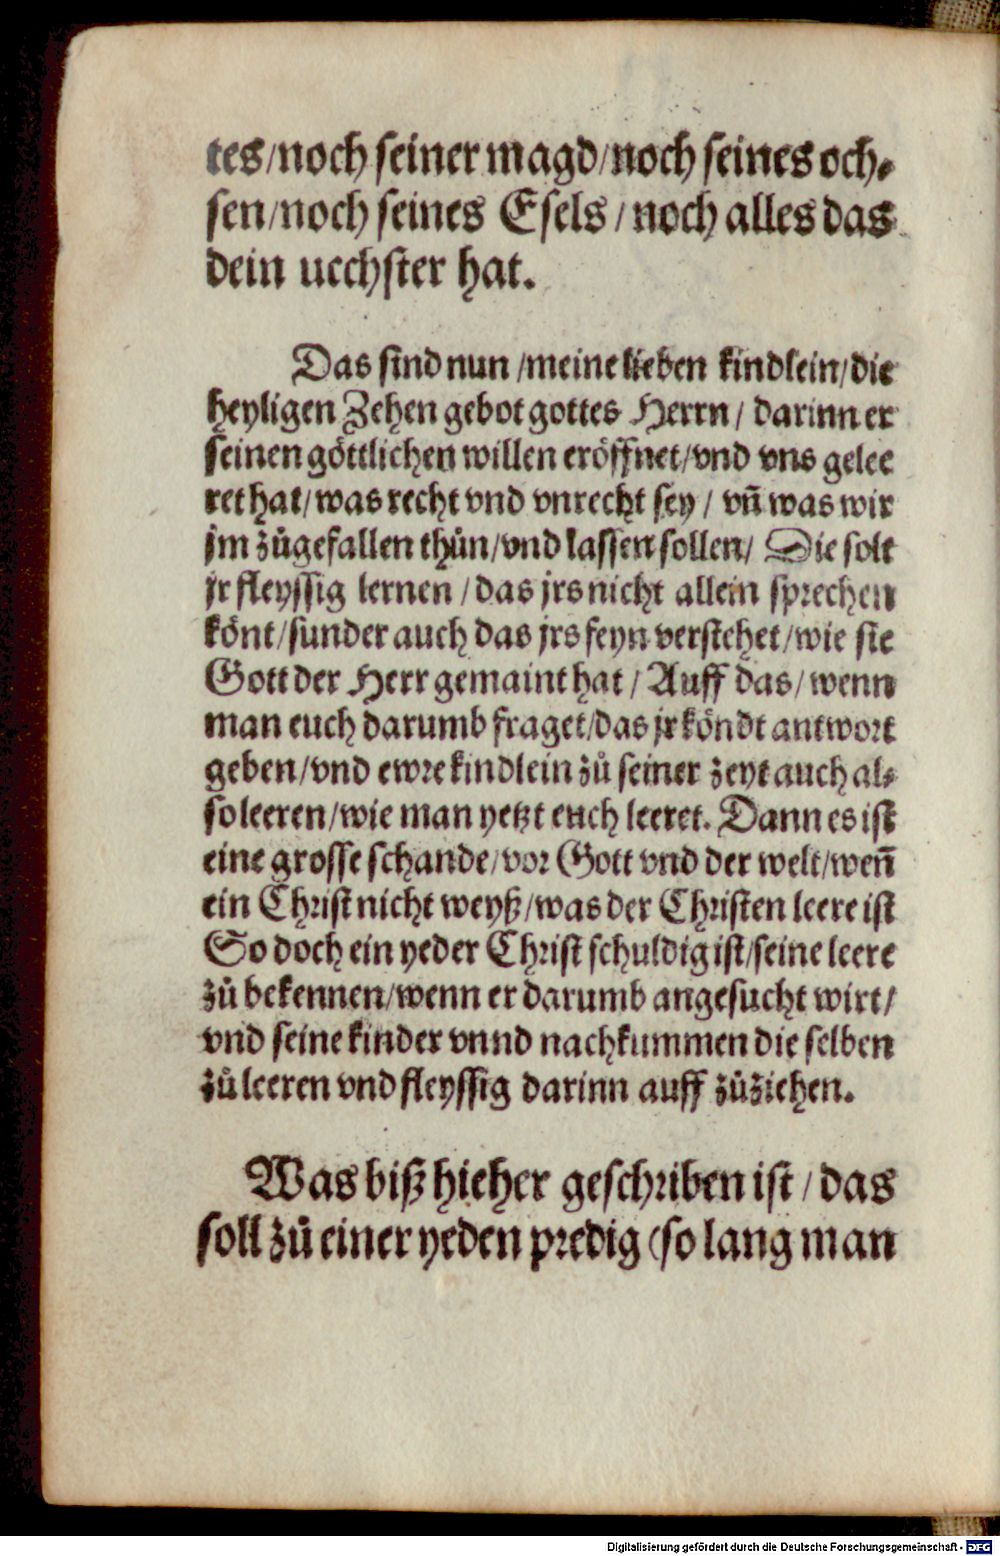 tes/noch seiner magd/noch seines och⸗
sen/noch seines Esels / noch alles das
dein uechster hat.
Das sind nun /meine lieben kindlein/die
heyligen Zehen gebot gottes Herrn/ darinn er
seinen göttlichen willen eröffnet/vnd vns gelee
ret hat/was recht vnd vnrecht sey / vn̄ was wir
jm zůgefallen thůn/vnd lassen sollen/ Die solt
jr fleyssig lernen /das jrs nicht allein sprechen
könt/sunder auch das jrs feyn verstehet/wie sie
Gott der Herr gemaint hat/ Auff das/wenn
man euch darumb fraget/das jr köndt antwort
geben/vnd ewre kindlein zů seiner zeyt auch al⸗
so leeren/wie man yetzt euch leeret. Dann es ist
eine grosse schande/vor Gott vnd der welt/wen̄
ein Christ nicht weyß/was der Christen leere ist
So doch ein yeder Christ schuldig ist/seine leere
zů bekennen/wenn er darumb angesucht wirt/
vnd seine kinder vnnd nachkummen die selben
zů leeren vnd fleyssig darinn auff zůziehen.
Was biß hieher geschriben ist / das
soll zů einer yeden predig (so lang man
Digitalisierung gefördert durch die Deutsche Forschungsgemeinschaft - DFG